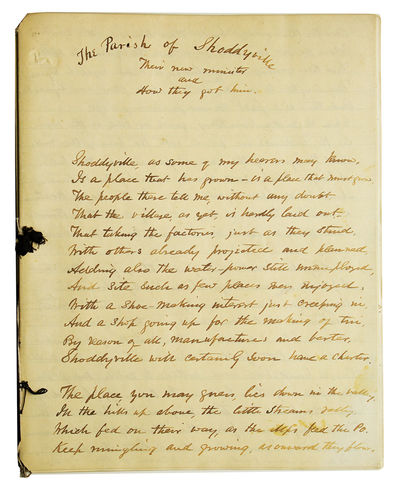 The Parish of Shoddyville
Their new minister
and
How they got him.
Shoddyville, as some of my hearers may know,
Is a place that has grown – is a place that must grow
The people there tell me, without any doubt
That the village, as yet, is hardly laid out.
That taking the factories just as they stand,
With others already projected and planned,
Adding also the water-power still unemployed,
And site such as few places ever enjoyed,
With a Shoe-making interest just creeping in,
And a shop going up for the making of tin,
By reason of all, manufacture and barter,
Shoddyville will certainly soon have a Charter.
The place you may guess, lies down in the valley,
In the hills up above, the little streams rally,
Which fed on their way, as the Alps feed the Po.
Keep mingling and growing, as onward they flow.